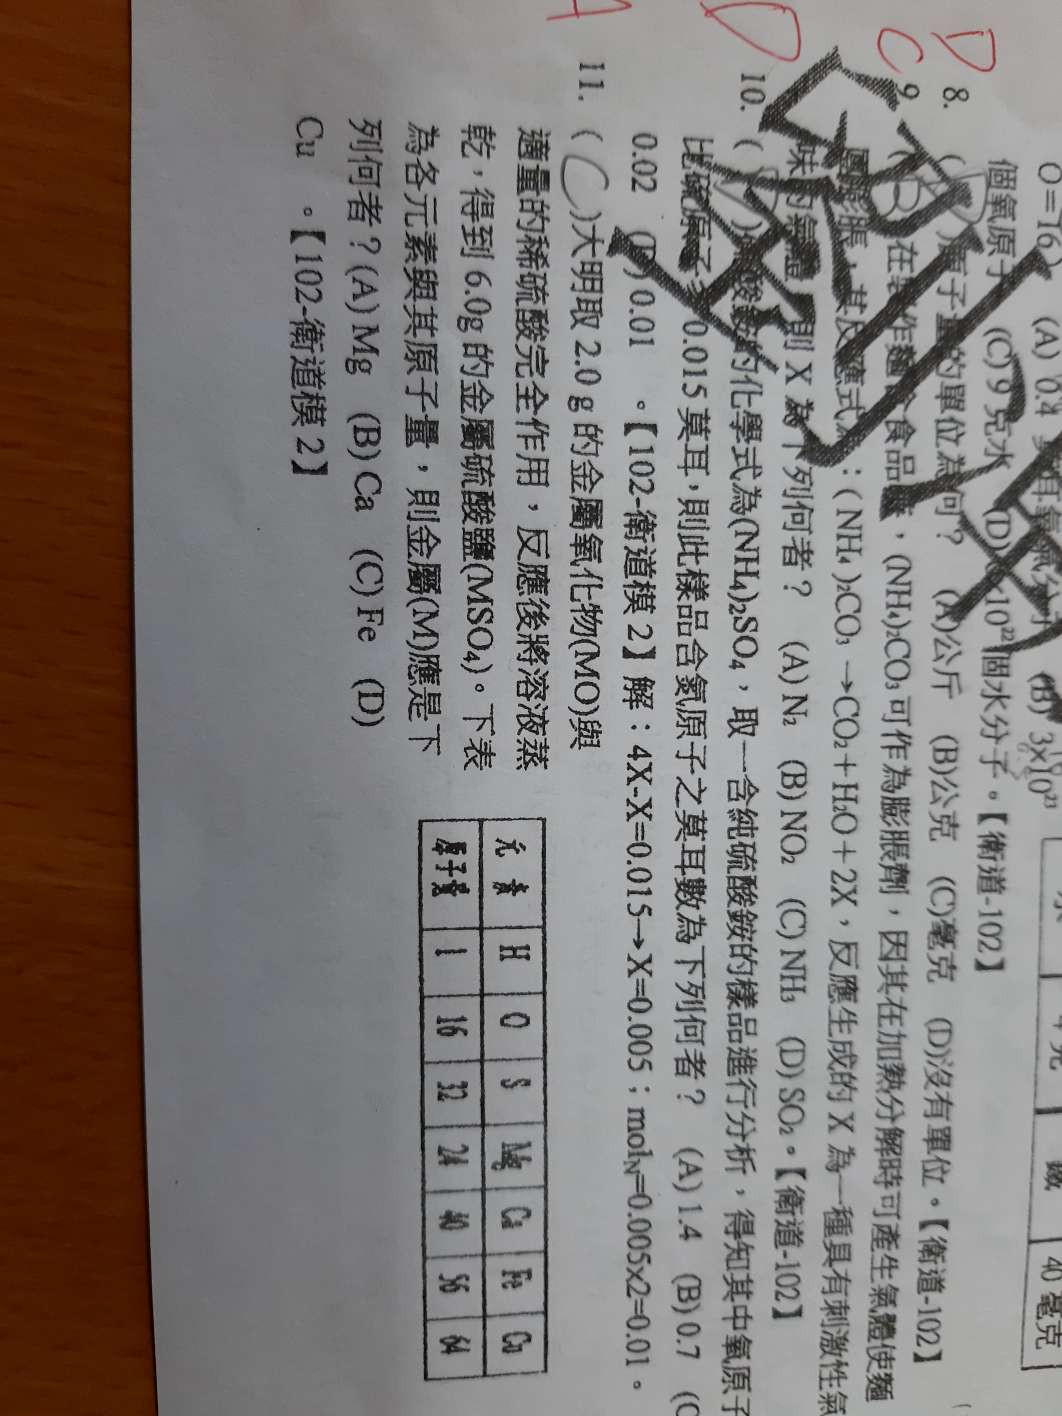 O=16) (A) 0.4 (B) 3×10²³
個氧原子 (C) 9 克水 (D) ×10²²個水分子。【衛道-102】
D 8. ( )原子量的單位為何? (A)公斤 (B)公克 (C)毫克 (D)沒有單位。【衛道-102】
C 9. ( B ) 在製作麵 食品 ,(NH₄)₂CO₃可作為膨脹劑,因其在加熱分解時可產生氣體使麵
膨脹,其反應式 :( NH₄ )₂CO₃ →CO₂+H₂O+2X,反應生成的 X 為一種具有刺激性氣
味的氣體 則 X 為下列何者? (A) N₂ (B) NO₂ (C) NH₃ (D) SO₂。【衛道-102】
D 10. ( ) 酸銨的化學式為(NH₄)₂SO₄,取一含純硫酸銨的樣品進行分析,得知其中氧原子
比硫原子 0.015 莫耳,則此樣品含氮原子之莫耳數為下列何者? (A) 1.4 (B) 0.7 (C
0.02 (D) 0.01 。【102-衛道模 2】解:4X-X=0.015→X=0.005;molN=0.005x2=0.01。
A 11. ( C )大明取 2.0 g 的金屬氧化物(MO)與
適量的稀硫酸完全作用,反應後將溶液蒸
乾,得到 6.0g 的金屬硫酸鹽(MSO₄)。下表
為各元素與其原子量,則金屬(M)應是下
列何者?(A) Mg (B) Ca (C) Fe (D)
Cu 。【102-衛道模 2】
元素 H O S Mg Ca Fe Cu
原子量 1 16 32 24 40 56 64
克 40 毫克